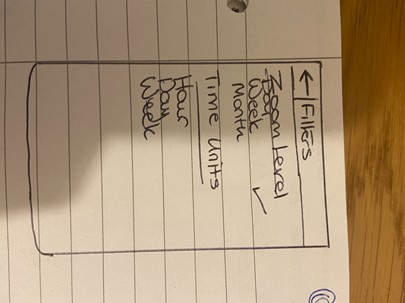 ← Filters
Zoom Level
Day
Week ✓
Month
Time Units
Hour
Day
Week